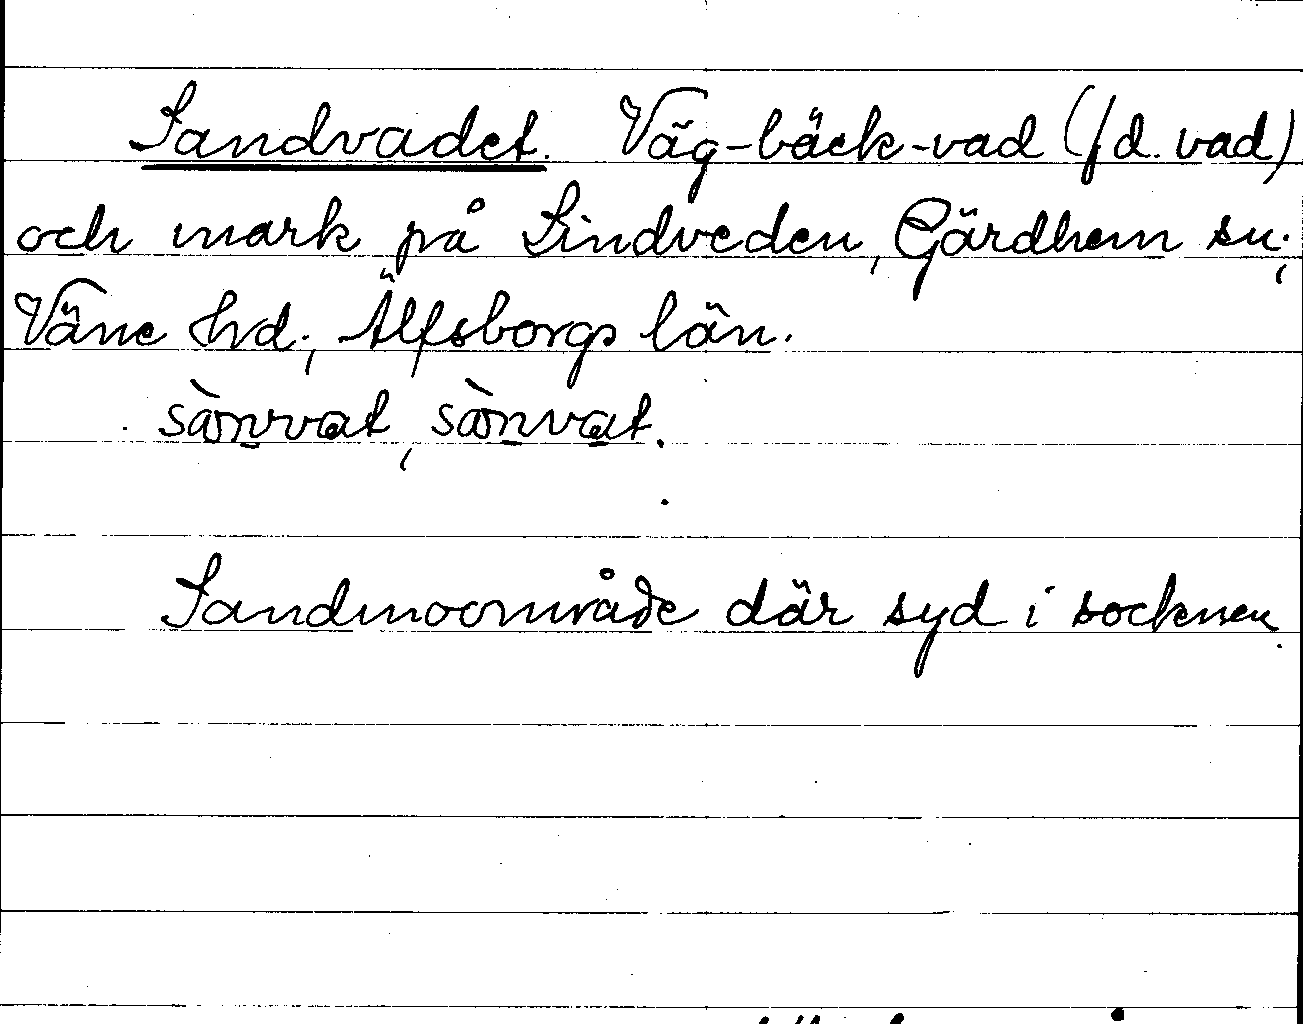 Sandvadet. Väg-bäck-vad (f d. vad)
och mark på Sindveden, Gärdhem sn;
Väne hd., Älfsborgs län.
sànvat, sànvat.
Sandmoområde där syd i socknen.